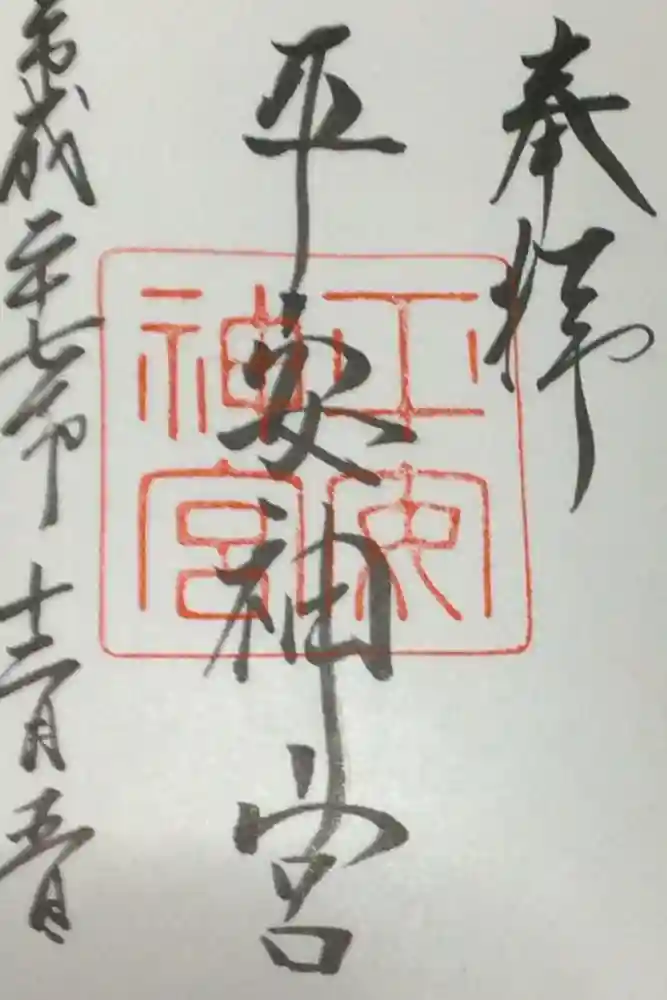 奉拝
平安神宮
平安神宮
平成二十七年十二月五日